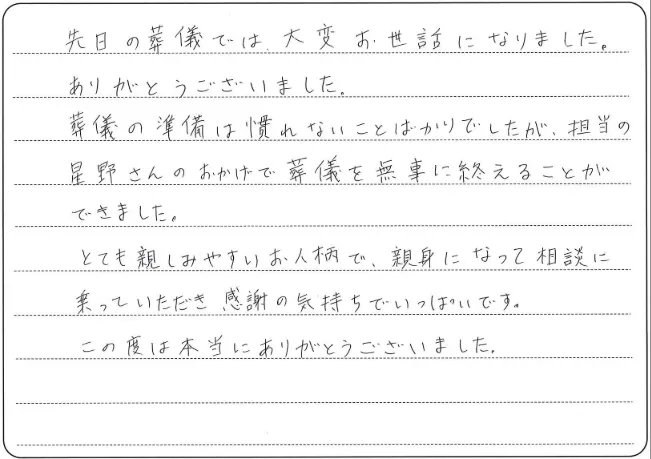 先日の葬儀では、大変お世話になりました。
ありがとうございました。
葬儀の準備は慣れないことばかりでしたが、担当の
星野さんのおかげで葬儀を無事に終えることが
できました。
とても親しみやすいお人柄で、親身になって相談に
乗っていただき感謝の気持ちでいっぱいです。
この度は本当にありがとうございました。